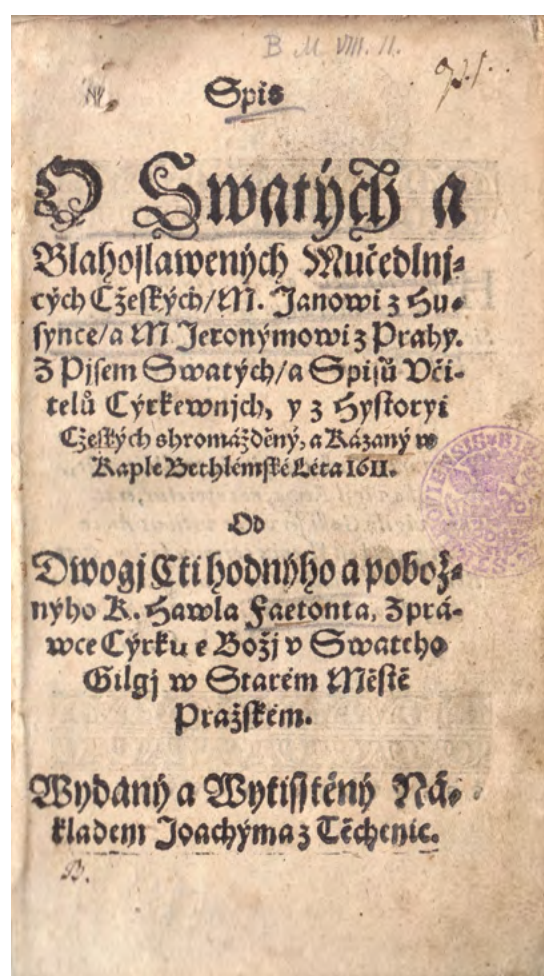 B M. VIII. 11.
Spis
O Swatých a
Blahoslawených Mučedlnj⸗
cých Cžeských/ M. Janowi z Hu⸗
synce/ a M Jeronýmowi z Prahy.
Z Pjsem Swatých/ a Spisů Vči⸗
telů Cýrkewnjch, y z Hystoryí
Cžeských shromážděný, a Kázaný w
Kaple Bethlémské Léta 1611.
Od
Dwogj Cti hodnýho a pobož⸗
nýho K. Hawla Faetonta, Zprá⸗
wce Cýrkwe Božj v Swateho
Gilgj w Starém Městě
Pražském.
Wydaný a Wytisstěný Ná⸗
kladem Joachýma z Těchenic.
B.